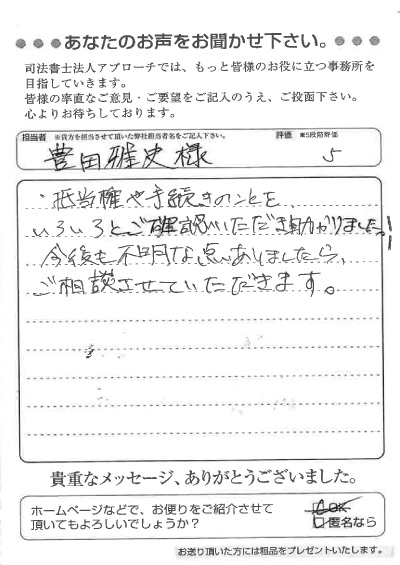 ●●●●あなたのお声をお聞かせ下さい。●●●●
司法書士法人アプローチでは、もっと皆様のお役に立つ事務所を
目指していきます。
皆様の率直なご意見・ご要望をご記入のうえ、ご投函下さい。
心よりお待ちしております。
担当者 ※貴方を担当させて頂いた弊社担当者名をご記入下さい。 評価 ※5段階評価
豊田雅史様 5
・抵当権や手続きのことを、
いろいろとご確認いただき助かりました。
今後も不明な点ありましたら、
ご相談させていただきます。
貴重なメッセージ、ありがとうございました。
ホームページなどで、お便りをご紹介させて
頂いてもよろしいでしょうか?
□OK
□匿名なら
お送り頂いた方には粗品をプレゼントいたします。